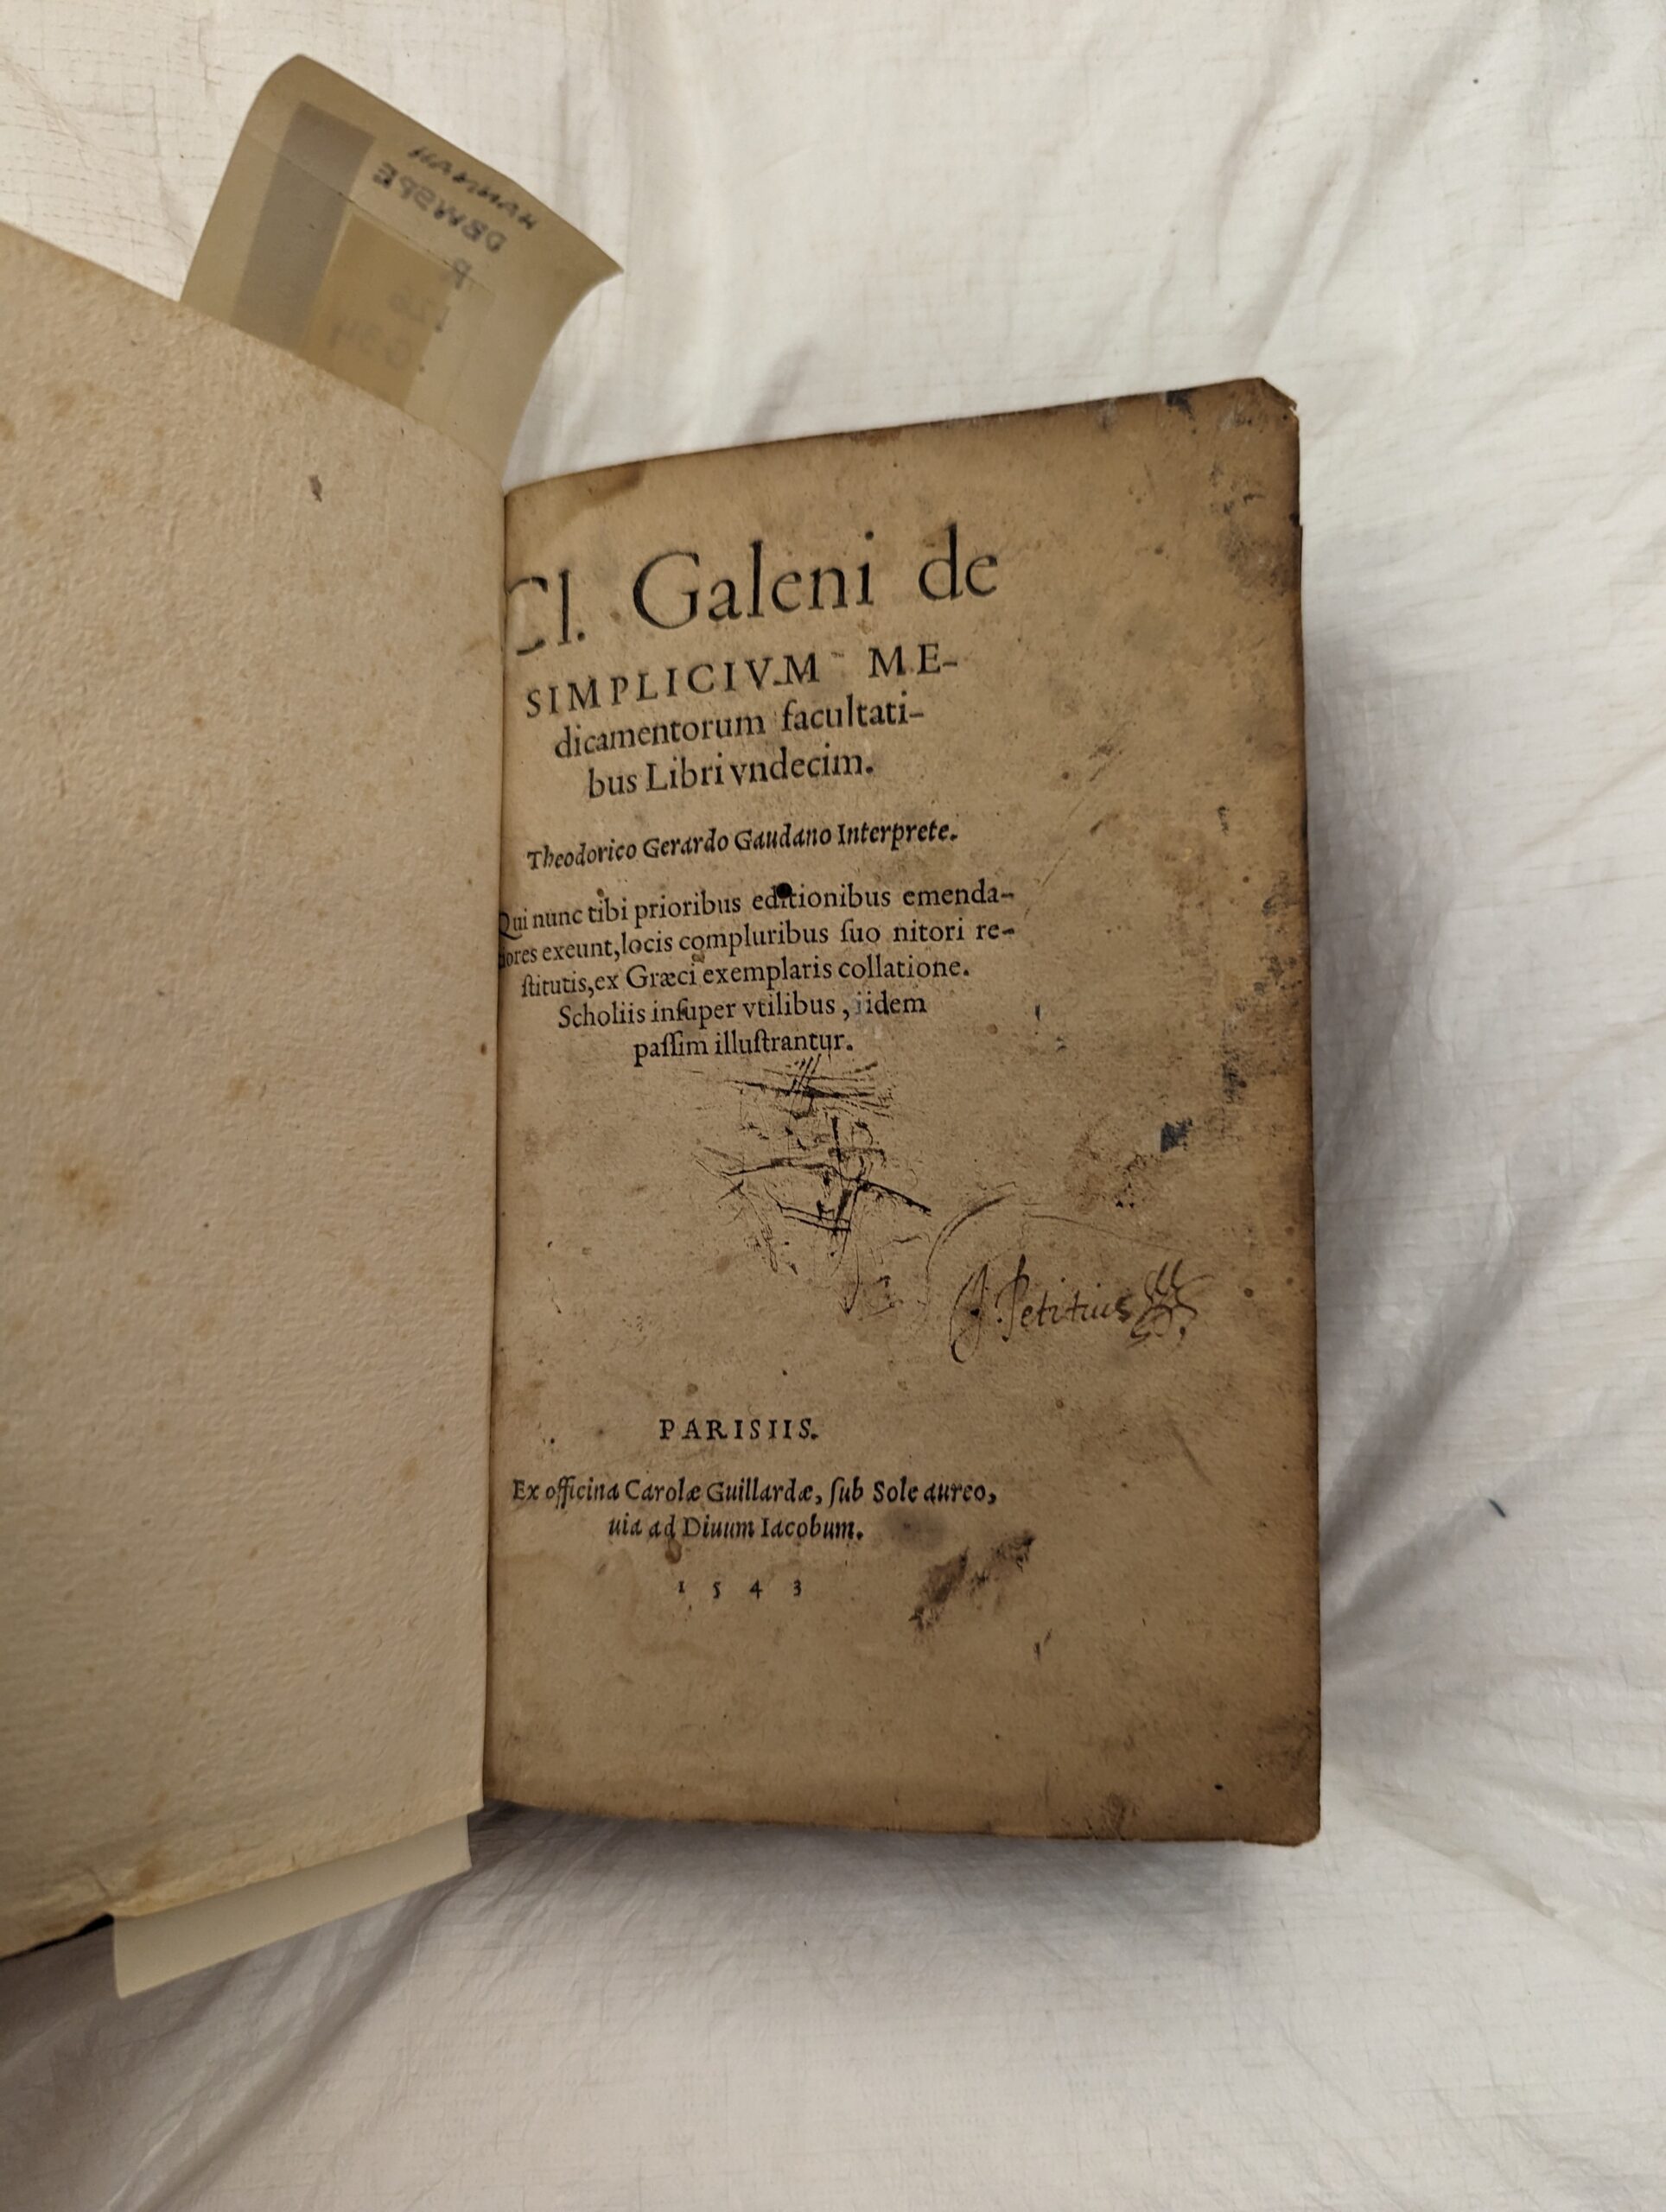 HANNAH
DRWSPE
R
126
G34
Cl. Galeni de
SIMPLICIVM ME-
dicamentorum facultati-
bus Libri vndecim.
Theodorico Gerardo Gaudano Interprete.
Qui nunc tibi prioribus editionibus emenda-
tiores exeunt, locis compluribus ſuo nitori re-
ſtitutis, ex Græci exemplaris collatione.
Scholiis inſuper vtilibus, iidem
paſſim illuſtrantur.
J. Petitius
PARISIIS.
Ex officina Carolæ Guillardæ, ſub Sole aureo,
uia ad Diuum Iacobum.
1543